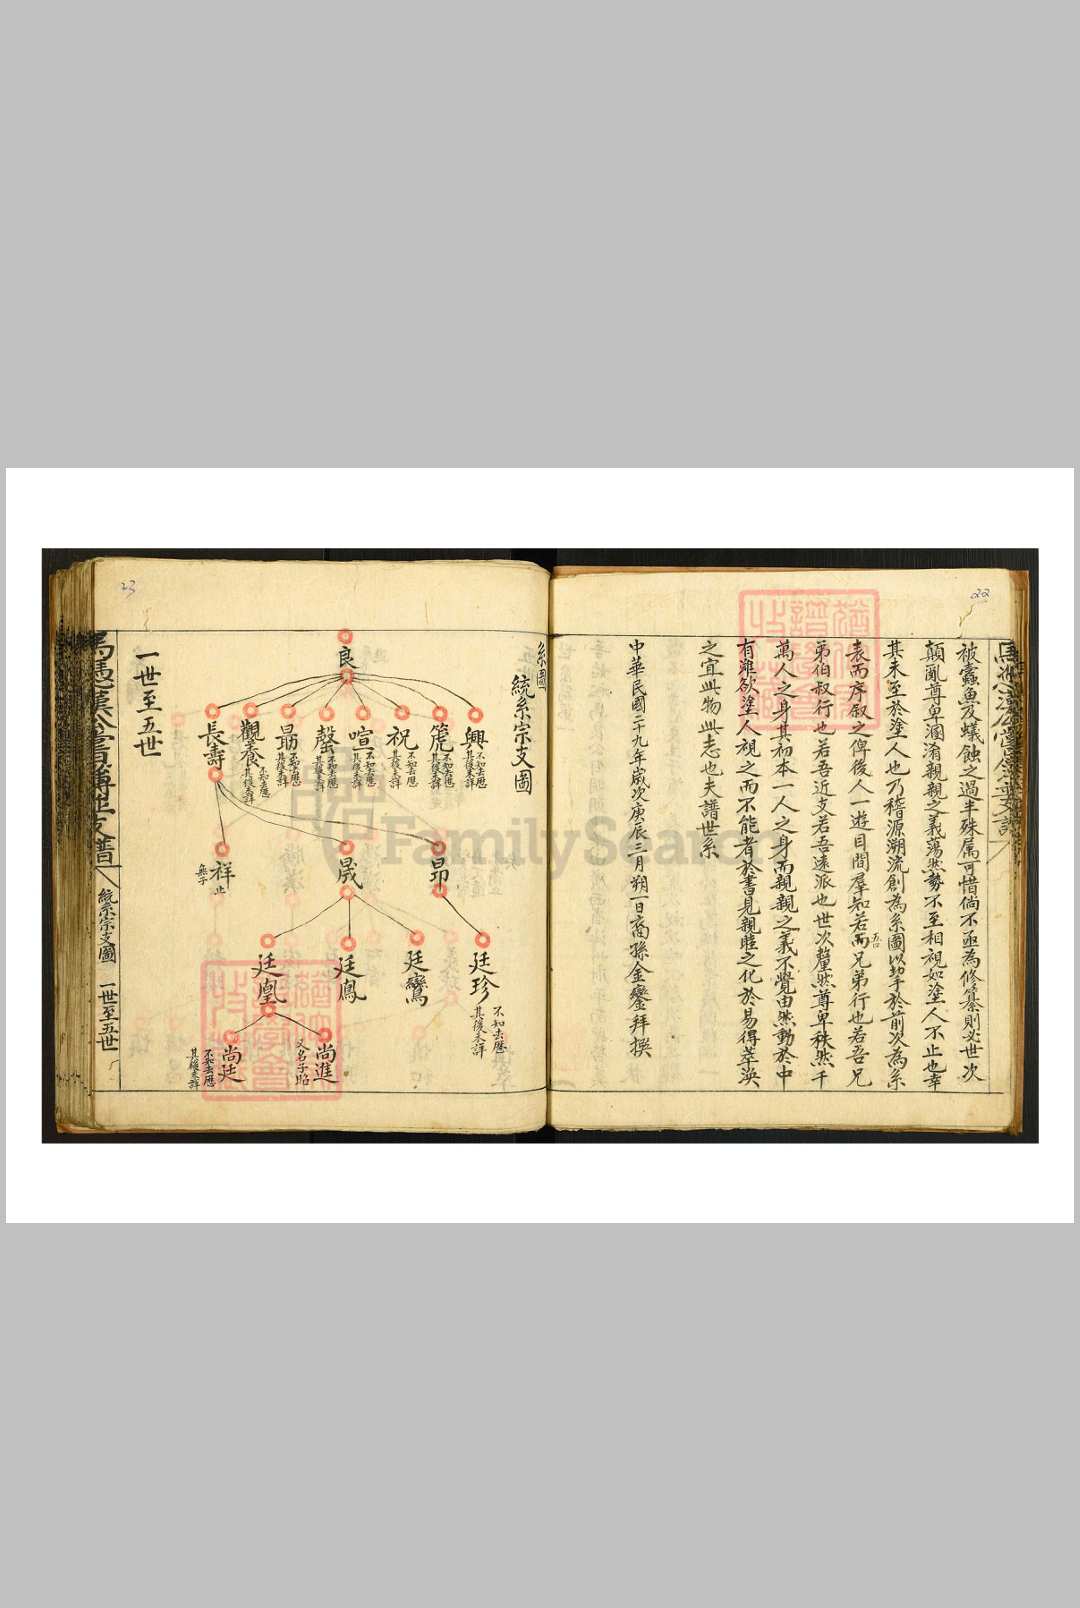 22
被蠹魚及蟻蝕之過半殊屬可惜倘不亟為修纂則必世次
顛亂尊卑溷淆親親之義蕩然勢不至相視如塗人不止也幸
其未至於塗人也乃稽源溯流創為系圖以幼于於前次為系
表而序叙之俾後人一遊目間羣知若而兄弟行也若吾兄
弟伯叔行也若吾近支若吾遠派也世次釐然尊卑秩然千
萬人之身其初本一人之身而親親之義不覺由然動於中
有雖欲塗人視之而不能者於書見親睦之化於易得萃渙
之宜此物此志也夫譜世系
中華民國二十九年歲次庚辰三月朔一日裔孫金鑾拜撰
23
系圖
統系宗支圖
良
興
不知去應
其後未詳
箎
不知去應
其後未詳
祝
不知去應
其後未詳
喧
不知去應
其後未詳
罄
不知去應
其後未詳
勗
不知去應
其後未詳
觀養
不知去應
其後未詳
長壽
昴
晟
祥
止
無子
廷珍
不知去應
其後未詳
廷鸞
廷鳳
廷凰
尚進
又名子昭
尚廷
不知去應
其後未詳
一世至五世
統系宗支圖
一世至五世
FamilySearch